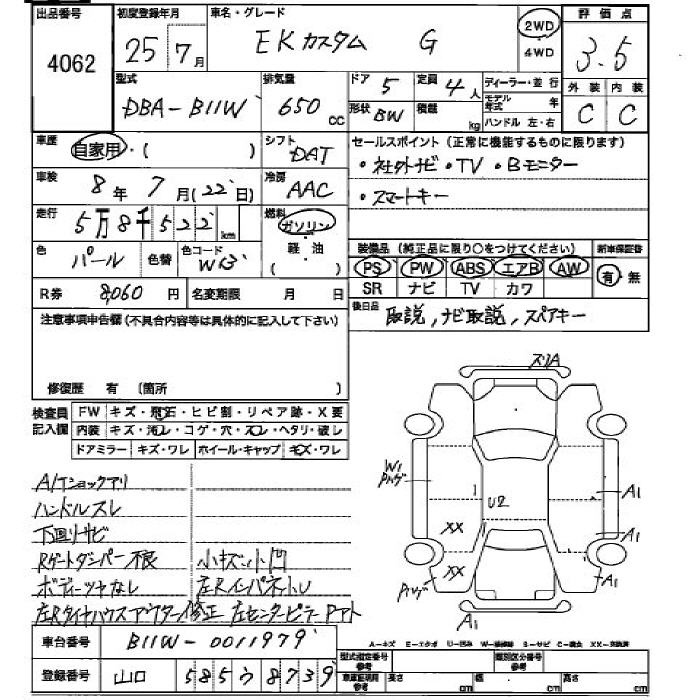 出品番号 初度登録年月 車名・グレード 2WD 4WD 評価点
4062 25年7月 EKカスタム G 3.5
型式 排気量 ドア 5 定員 4人 ディーラー・並行 外装 内装
DBA-B11W 650cc 形状 BW 積載 kg モデル年式 年 C C
ハンドル 左・右
車歴 自家用・( ) シフト DAT セールスポイント(正常に機能するものに限ります)
車検 8年7月(22日) 冷房 AAC ・社外ナビ・TV・Bモニター
走行 5万8千522km 燃料 ガソリン ・スマートキー
軽油 ( )
色 パール 色替 色コード W13 装備品(純正品に限り〇をつけてください) 新車保証書
PS PW ABS エアB AW 有・無
SR ナビ TV カワ
R券 8,060円 名変期限 月 日
後日品 取説,ナビ取説,スペアキー
注意事項申告欄(不具合内容等は具体的に記入して下さい)
修復歴 有 (箇所 )
検査員記入欄 FW キズ・飛石・ヒビ割・リペア跡・X要
内装 キズ・汚レ・コゲ・穴・スレ・ヘタリ・破レ
ドアミラー キズ・ワレ ホイール・キャップ キズ・ワレ
A/Tショックアリ
ハンドルスレ
下回リサビ
Rゲートダンパー不良 小キズ小凹
ボディーツヤなし 左Rインパネトレ
左Rタイヤハウスアウター修正 左センターピラーPアト
スリA
W1
Pハゲ
U2
A1
XX
A1
XX
Pハゲ
A1
A1
車台番号 B11W-0011979
A-キズ E-エクボ U-凹み W-補修跡 S-サビ C-腐食 XX-交換済
登録番号 山口 585 う 8739
型式指定番号 参考 類別区分番号 参考
車庫証明用 参考 長さ cm 幅 cm 高さ cm